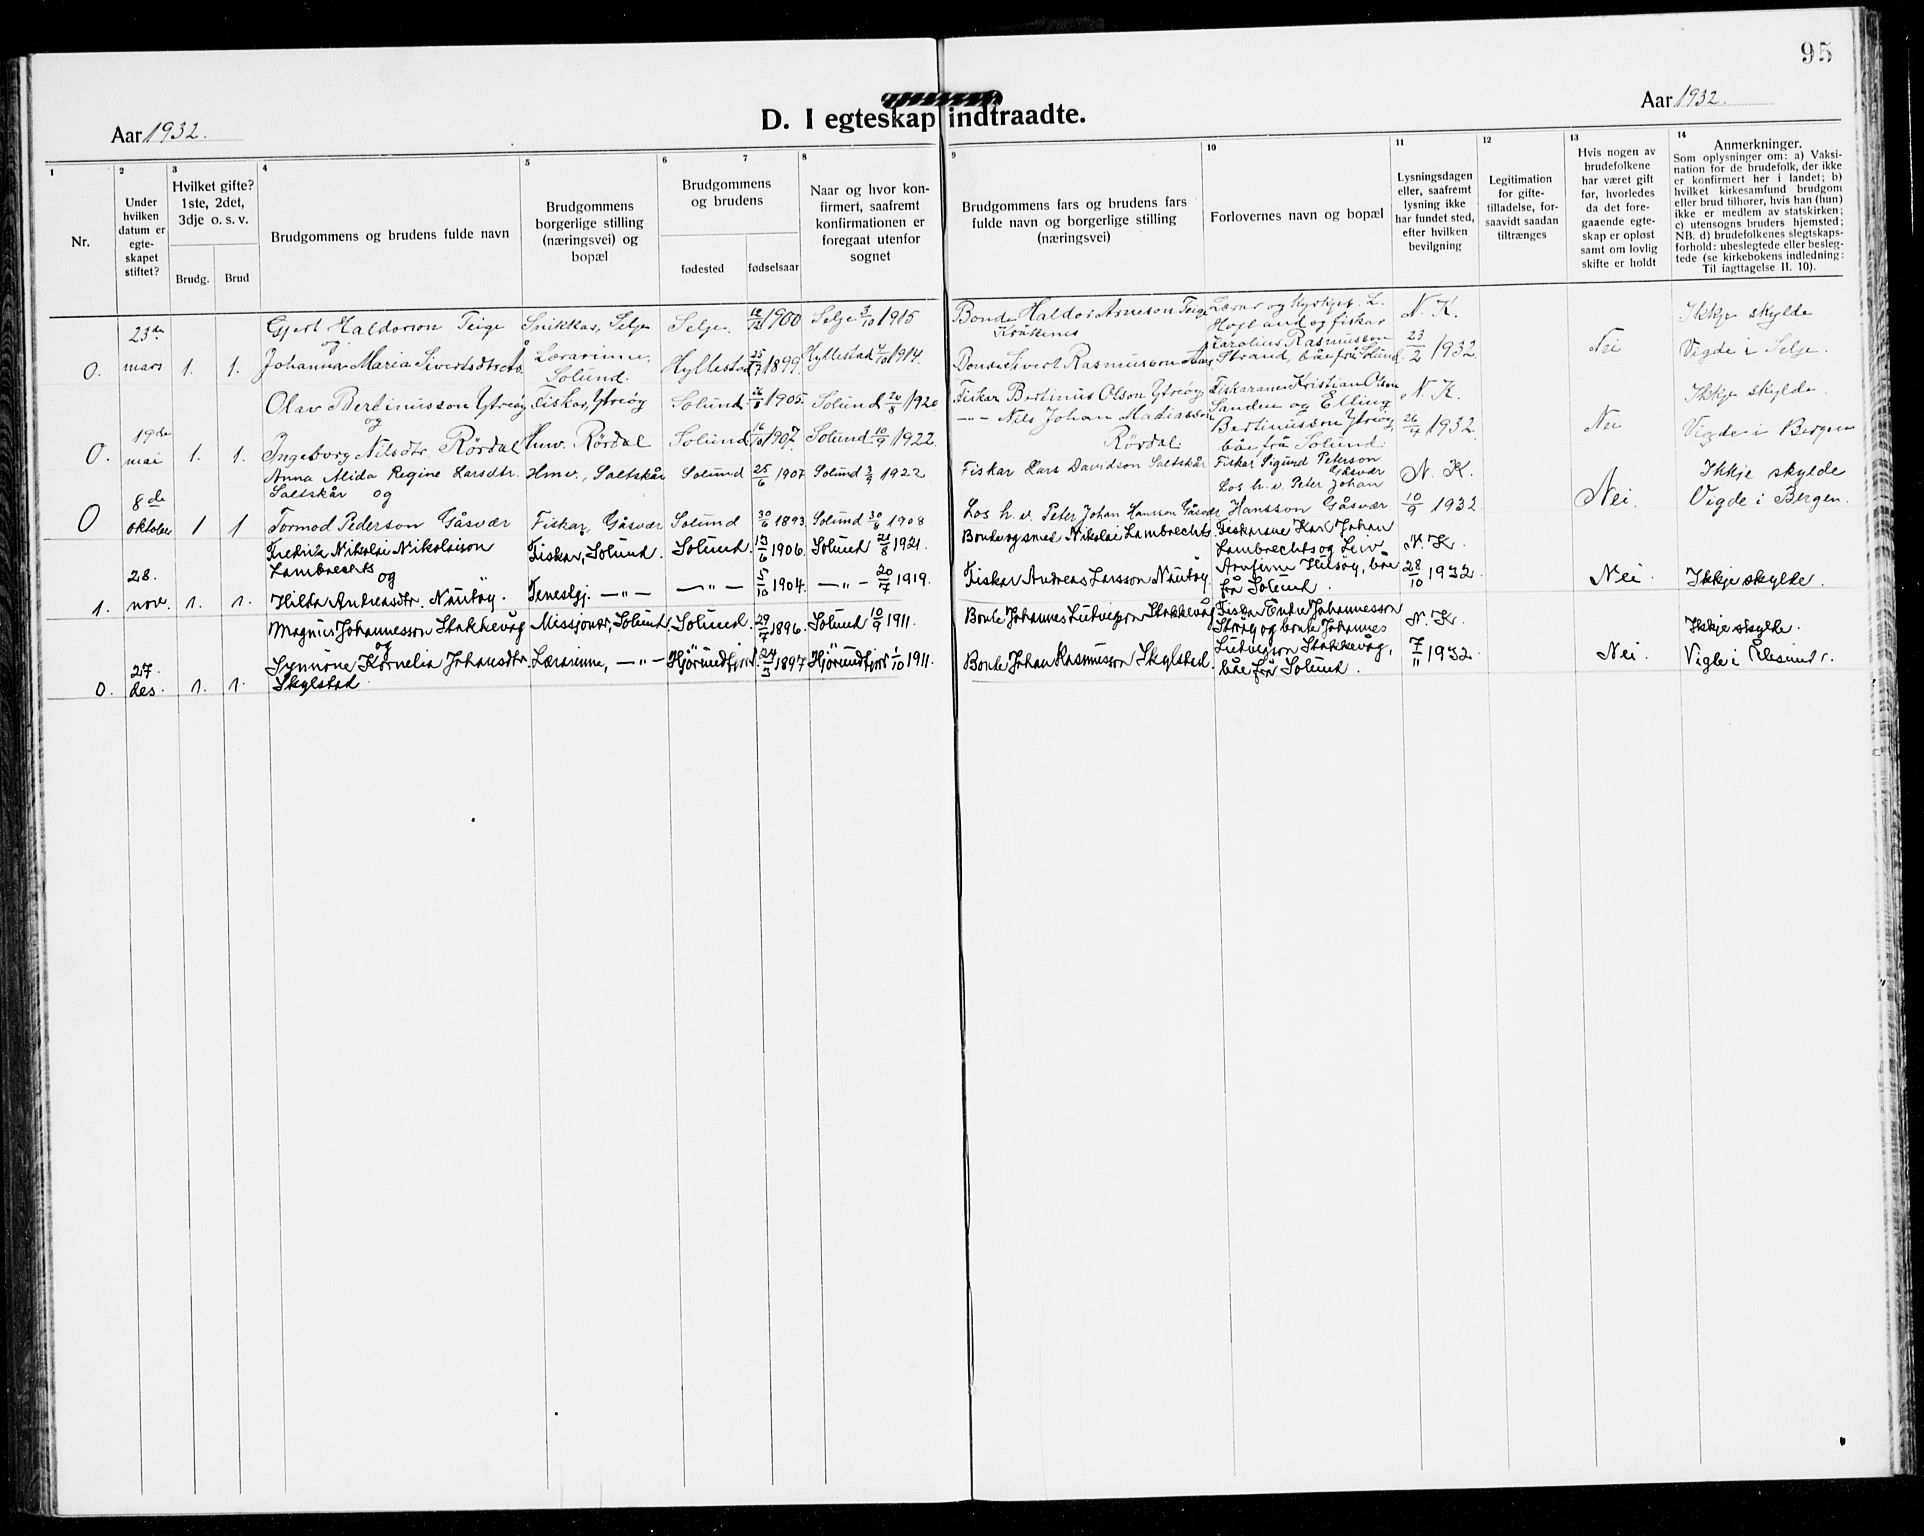 95
D. I egteskap indtraadte.
Aar 1932.
Aar 1932.
1
2
3
4
5
6
7
8
9
10
11
12
13
14
Nr.
Under
hvilken
datum er
egte-
skapet
stiftet?
Hvilket gifte?
1ste, 2det,
3dje o. s. v.
Brudg.
Brud
Brudgommens og brudens fulde navn
Brudgommens
borgerlige stilling
(næringsvei) og
bopæl
Brudgommens
og brudens
fødested
fødselsaar
Naar og hvor kon-
firmert, saafremt
konfirmationen er
foregaat utenfor
sognet
Brudgommens fars og brudens fars
fulde navn og borgerlige stilling
(næringsvei)
Forlovernes navn og bopæl
Lysningsdagen
eller, saafremt
lysning ikke
har fundet sted,
efter hvilken
bevilgning
Legitimation
for gifte-
tilladelse, for-
saavidt saadan
tiltrænges
Hvis nogen av
brudefolkene
har været gift
før, hvorledes
da det fore-
gaaende egte-
skap er opløst
samt om lovlig
skifte er holdt
Anmerkninger.
Som oplysninger om: a) Vaksi-
nation for de brudefolk, der ikke
er konfirmert her i landet; b)
hvilket kirkesamfund brudgom
eller brud tilhører, hvis han (hun)
ikke er medlem av statskirken;
c) utensogns bruders hjemsted;
NB. d) brudefolkenes slegtskaps-
forhold: ubeslegtede eller besleg-
tede (se kirkebokens indledning:
Til iagttagelse II. 10).
23de
mars
0. 1. 1.
Gjert Haldorson Teige
og
Johanna Maria Sivertsdtr
Snikkar, Selje
Lærarinne,
Solund.
Selje. 1900 Selje 3/10 1915
Hyllestad 1899 Hyllestad 1914.
Bonde Haldor Arneson Teige
Kråkenes
Bonde Sivert Rasmusson
Lærar og kyrkjes. L.
Hogland og fiskar
Karolius Rasmusson
Strand, båe frå Solund.
N. K.
23/2 1932.
Nei
Ikkje skylde
Vigde i Selje.
19de
mai
0. 1. 1.
Olav Bertinusson Ytreøy
og
Ingeborg Nilsdtr. Rördal
Fiskar, Ytreöy
Hmv. Rördal
Solund 1905. Solund 20/8 1920
Solund 1907. Solund 10/9 1922.
Fiskar Bertinus Olson Ytreöy
—"— Nils Johan Madiasson
Rørdal.
Fiskarane Kristian Olsen
Sanden og Elling
Bertinusson Ytreöy
båe frå Solund.
N. K.
26/4 1932.
Nei
Ikkje skylde.
Vigde i Bergen
8de
oktober
0 1 1
Anna Alida Regine Larsdtr.
Saltskår og
Tormod Pederson Gåsvær
Hmv., Saltskår
Fiskar, Gåsvær
Solund 25/6 1907 Solund 1922
Solund 30/6 1893 Solund 30/8 1908
Fiskar Lars Davidson Saltskår
Los h. v. Peter Johan Hansson Gåsvær
Fiskar Sigurd Peterson
Gåsvær
Los h. v. Peter Johan
Hansson Gåsvær
N. K.
10/9 1932
Nei.
Ikkje skylde
Vigde i Bergen.
28.
nov.
1. 1. 1.
Fredrik Nikolai Nikolaison
Lambrechts
og
Hilda Andreasdtr. Nautöy.
Fiskar, Solund.
Tenestgj. —"—
Solund. 13/6 1906. Solund 21/8 1921.
—"— 5/10 1904. —"— 20/7 1919.
Bonde og smed Nikolai Lambrechts.
Fiskar Andreas Larsson Nautöy.
Fiskarane Karl Johan
Lambrechts og Leiv
Arnfinn Hilsöy, båe
frå Solund.
N. K.
28/10 1932
Nei.
Ikkje skylde.
27.
des.
0. 1. 1.
Magnus Johannesson Stakkevåg
og
Synnöve Kornelia Johansdtr.
Skylstad
Missjonær, Solund.
Lærarinne, —"—
Solund. 29/7 1896. Solund 10/9 1911.
Hjörundfjord. 24/3 1897 Hjörundfjord 1/10 1911.
Bonde Johannes Ludvigson Stakkevåg
Bonde Johan Rasmusson Skylstad.
Fiskar Endre Johannesson
Strööy og bonde Johannes
Ludvigson Stakkevåg,
båe frå Solund.
N. K.
7/11 1932
Nei.
Ikkje skylde.
Vigde i Ålesund.